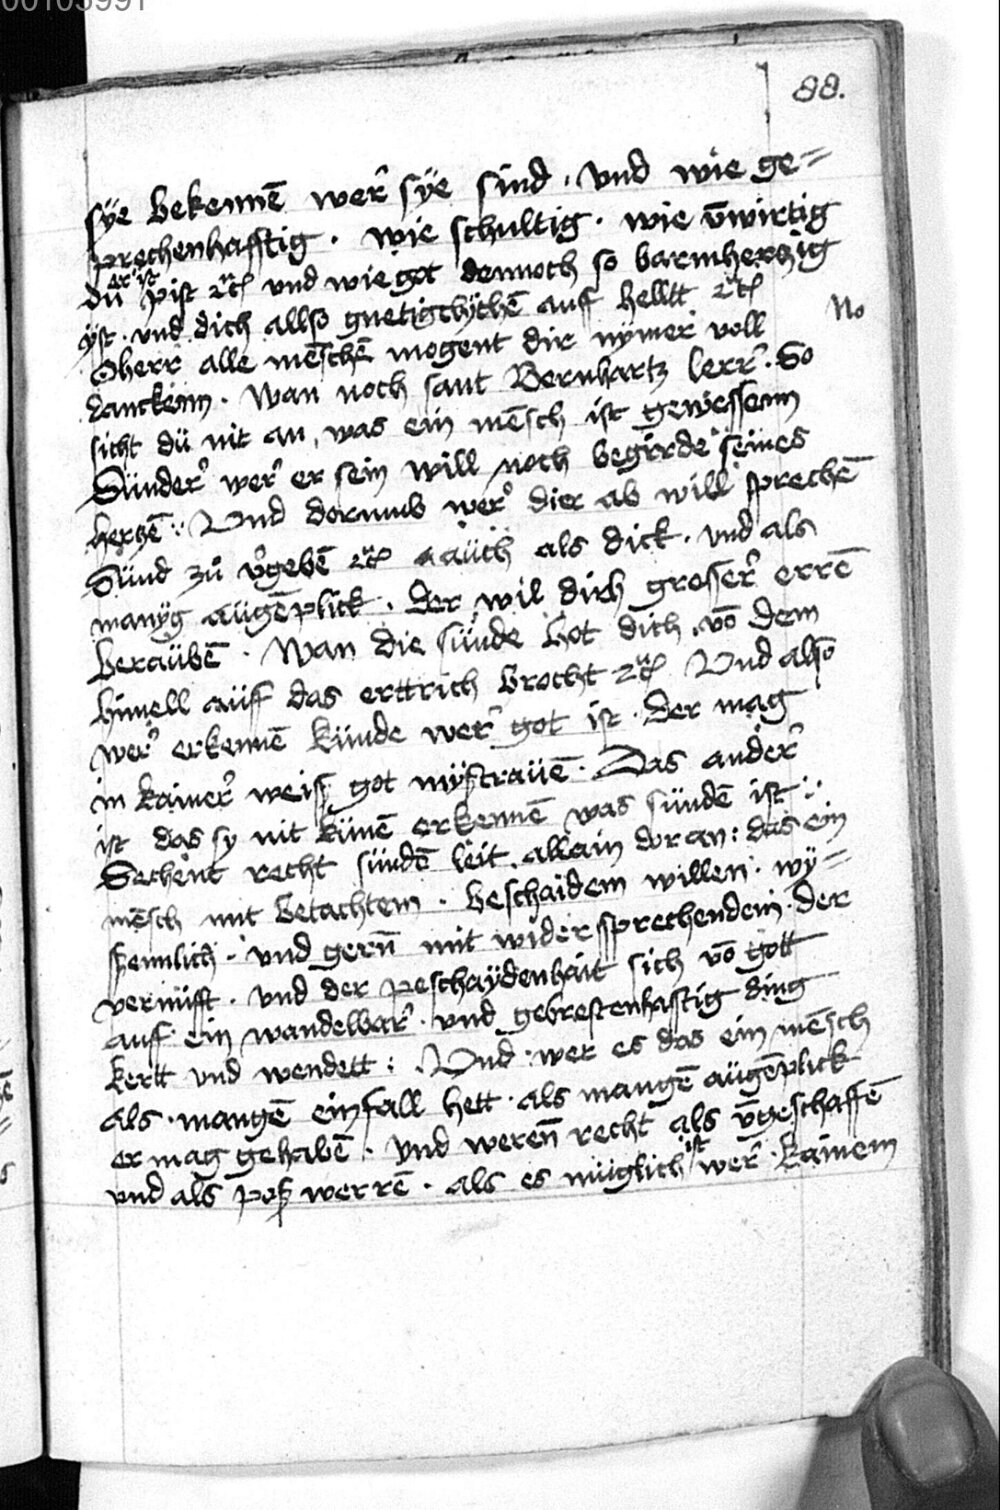 00103991
88.
sÿe bekennē wer sÿe sind . vnd wie ge=
prechenhafftig . wie schultig . wie v̄wirtig
er ist
dü pist ꝛc vnd wie got dennoch so barmherczig
ÿst . vnd dich allso gnetigclÿchē auff helltt ꝛc
No
O herr alle mēschē mogent dir nÿmer voll
danckenn . wan noch sant Bernhartz lerr . So
sicht dü nit an , was ein mēsch ist gewessenn
Sünder wer er sein will noch begirde seines
herczē : Vnd dorumb wer dier ab will sprechē
Sünd zů v'gebē ꝛc aüch als dick . vnd als
manÿg aügēplick . der wil dich grosser errē
beraübē . Wan die sünde hot dich vō dem
himell aüff das erttrich brocht ꝛc Vnd also
wer erkennē künde wer got ist . der mag
in kainer weiß got mÿßtraüē . Das ander
ist das sy nit künē erkennē was sündē ist :
Sechent recht sündē leit allain dor an : das ein
mēsch mit betachtem . beschaidem willen . wÿ=
ssennlich . vnd gern mit wider sprechendem . der
vernüfft . vnd der peschaÿdenhait sich vō gott
auff ein wandelbar . vnd gebrestenhaftig ding
kertt vnd wendett : Vnd wer es das ein mēsch
als . mangē einfall hett . als mangē aügēplick
er mag gehabē . vnd weren recht als v̄geschaffē
vnd als poß werrē . als es müglich ist wer . kainem